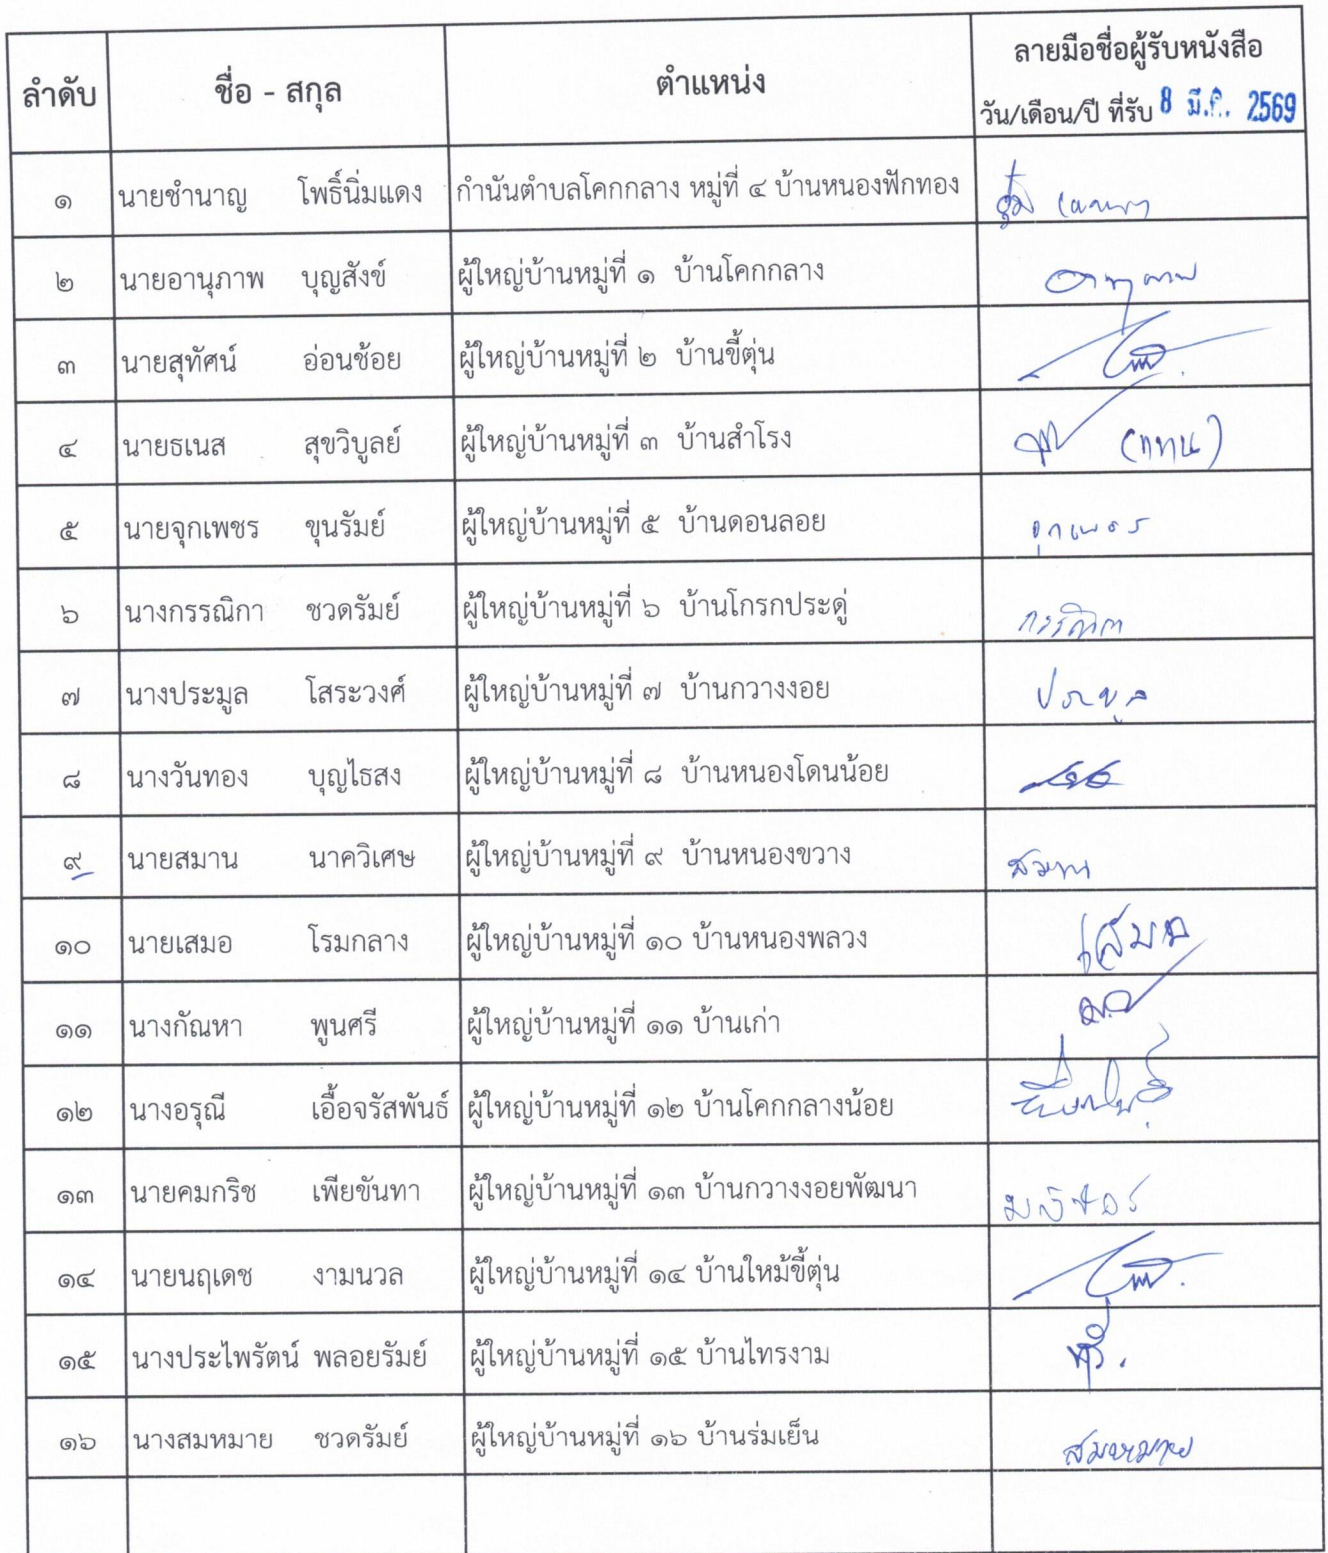 ลำดับ ชื่อ - สกุล ตำแหน่ง ลายมือชื่อผู้รับหนังสือ
วัน/เดือน/ปี ที่รับ 8 มี.ค. 2569
๑ นายชำนาญ โพธิ์นิ่มแดง กำนันตำบลโคกกลาง หมู่ที่ ๔ บ้านหนองฟักทอง
๒ นายอานุภาพ บุญสังข์ ผู้ใหญ่บ้านหมู่ที่ ๑ บ้านโคกกลาง อานุภาพ
๓ นายสุทัศน์ อ่อนช้อย ผู้ใหญ่บ้านหมู่ที่ ๒ บ้านขี้ตุ่น
๔ นายธเนส สุขวิบูลย์ ผู้ใหญ่บ้านหมู่ที่ ๓ บ้านสำโรง (แทน)
๕ นายจุกเพชร ขุนรัมย์ ผู้ใหญ่บ้านหมู่ที่ ๕ บ้านดอนลอย จุกเพชร
๖ นางกรรณิกา ชวดรัมย์ ผู้ใหญ่บ้านหมู่ที่ ๖ บ้านโกรกประดู่ กรรณิกา
๗ นางประมูล โสระวงศ์ ผู้ใหญ่บ้านหมู่ที่ ๗ บ้านกวางงอย ประมูล
๘ นางวันทอง บุญไธสง ผู้ใหญ่บ้านหมู่ที่ ๘ บ้านหนองโดนน้อย
๙ นายสมาน นาควิเศษ ผู้ใหญ่บ้านหมู่ที่ ๙ บ้านหนองขวาง สมาน
๑๐ นายเสมอ โรมกลาง ผู้ใหญ่บ้านหมู่ที่ ๑๐ บ้านหนองพลวง เสมอ
๑๑ นางกัณหา พูนศรี ผู้ใหญ่บ้านหมู่ที่ ๑๑ บ้านเก่า
๑๒ นางอรุณี เอื้อจรัสพันธ์ ผู้ใหญ่บ้านหมู่ที่ ๑๒ บ้านโคกกลางน้อย
๑๓ นายคมกริช เพียขันทา ผู้ใหญ่บ้านหมู่ที่ ๑๓ บ้านกวางงอยพัฒนา
๑๔ นายนฤเดช งามนวล ผู้ใหญ่บ้านหมู่ที่ ๑๔ บ้านใหม้ขี้ตุ่น
๑๕ นางประไพรัตน์ พลอยรัมย์ ผู้ใหญ่บ้านหมู่ที่ ๑๕ บ้านไทรงาม
๑๖ นางสมหมาย ชวดรัมย์ ผู้ใหญ่บ้านหมู่ที่ ๑๖ บ้านร่มเย็น สมหมาย